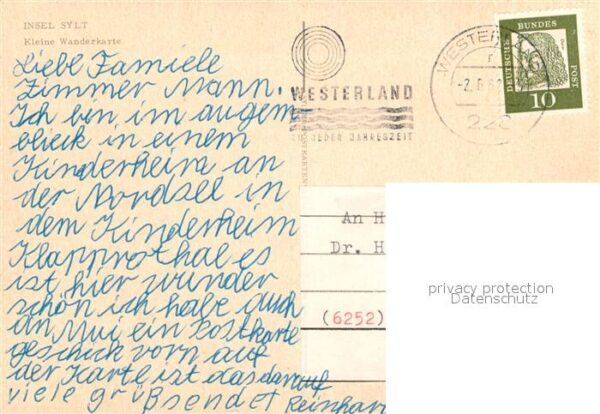 INSEL SYLT
Kleine Wanderkarte
Liebe Famiele
Zimmer Mann.
Ich bin im augem
blieck in einem
Kinderheim an
der Nordsee in
dem Kinderheim
Klapprothal es
ist hier wunder
schön ich habe auch
an Mui ein Postkarte
geschick vorn auf
der Karte ist das darauf
viele grüß sendet Reinhar
WESTERLAND
ZU JEDER JAHRESZEIT
DEUTSCHE BUNDES POST
10
An H
Dr. H
(6252)
privacy protection
Datenschutz